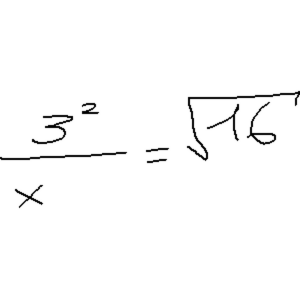 3² / x = √16